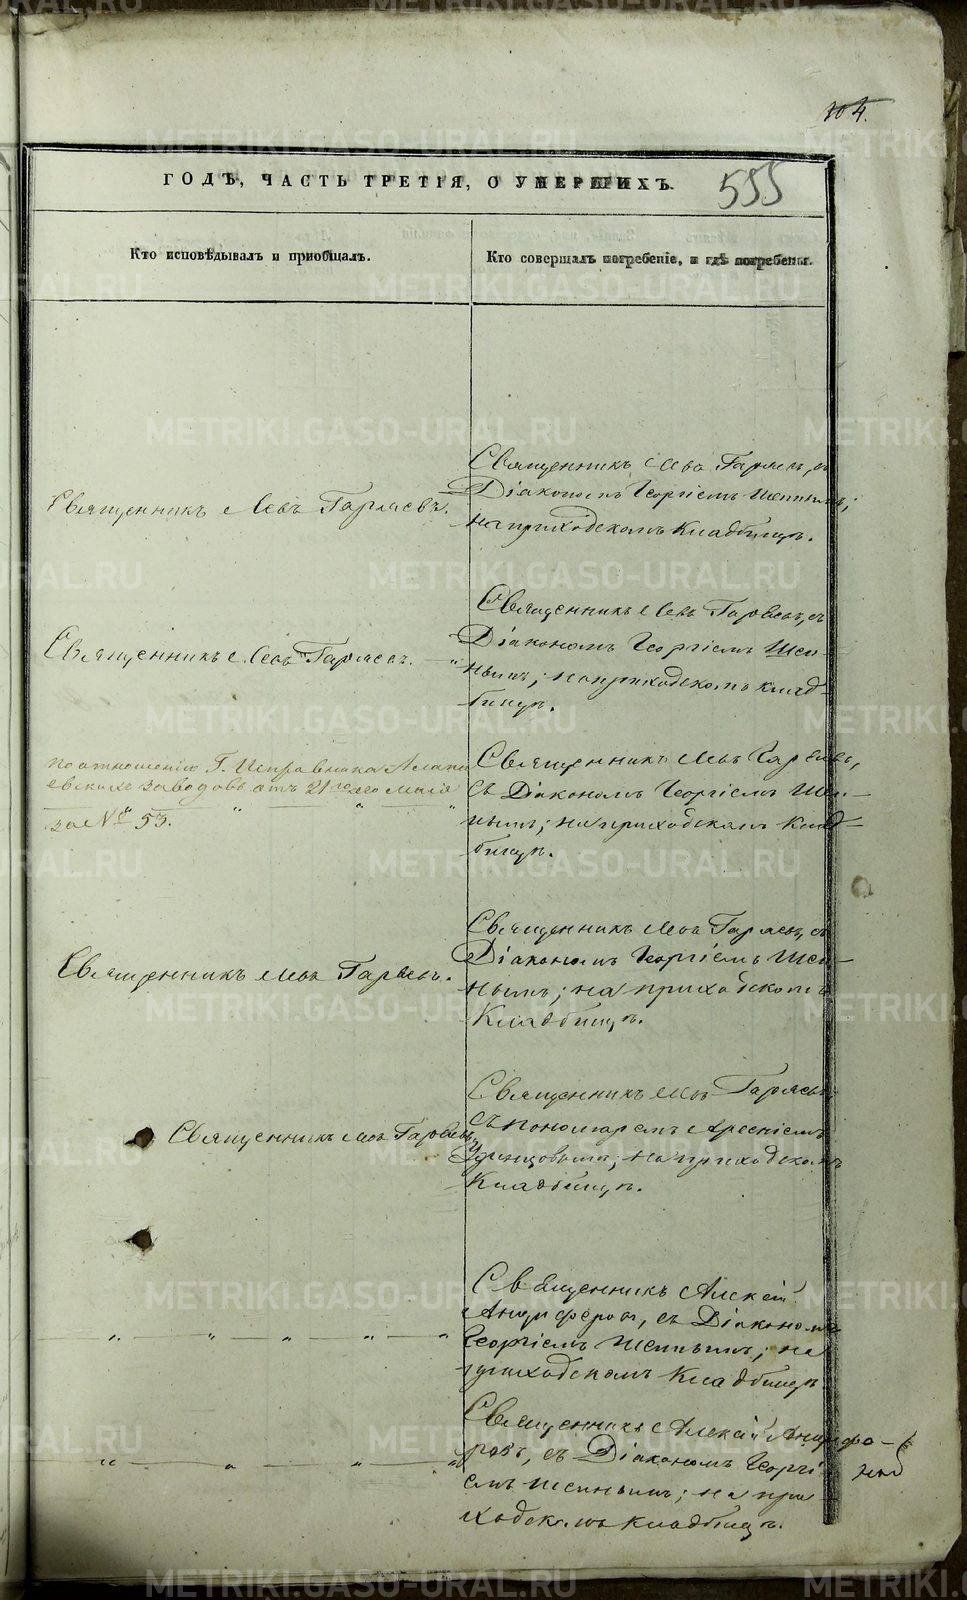 104.
555
ГОДѢ, ЧАСТЬ ТРЕТІЯ, О УМЕРШИХЪ.
Кто исповѣдывалъ и пріобщалъ.
Кто совершалъ погребеніе, и гдѣ погребены.
Священникъ Левъ Гаряевъ.
Священникъ Левъ Гаряевъ, съ
Діакономъ Георгіемъ
на приходскомъ Кладбищѣ.
Священникъ Левъ Гаряевъ.
Священникъ Левъ Гаряевъ, съ
Діакономъ Георгіемъ
нымъ; на приходскомъ клад-
бищѣ.
по отношенію Г. Исправника Алапа
евскихъ заводовъ отъ 21го Мая
за № 53.
Священникъ Левъ Гаряевъ,
съ Діакономъ Георгіемъ
нымъ; на приходскомъ Клад-
бищѣ.
Священникъ Левъ Гаряевъ.
Священникъ Левъ Гаряевъ, съ
Діакономъ Георгіемъ
нымъ; на приходскомъ
Кладбищѣ.
Священникъ Левъ Гаряевъ.
Священникъ Левъ Гаряевъ,
съ пономаремъ Арсеніемъ
Удинцовымъ; на приходскомъ
Кладбищѣ.
Священникъ Алексій
Анциферовъ, съ Діакономъ
Георгіемъ на
приходскомъ Кладбищѣ
Священникъ Алексій Анцифе-
ровъ, съ Діакономъ Георгі
емъ на при
ходскомъ кладбищѣ.
METRIKI.GASO-URAL.RU